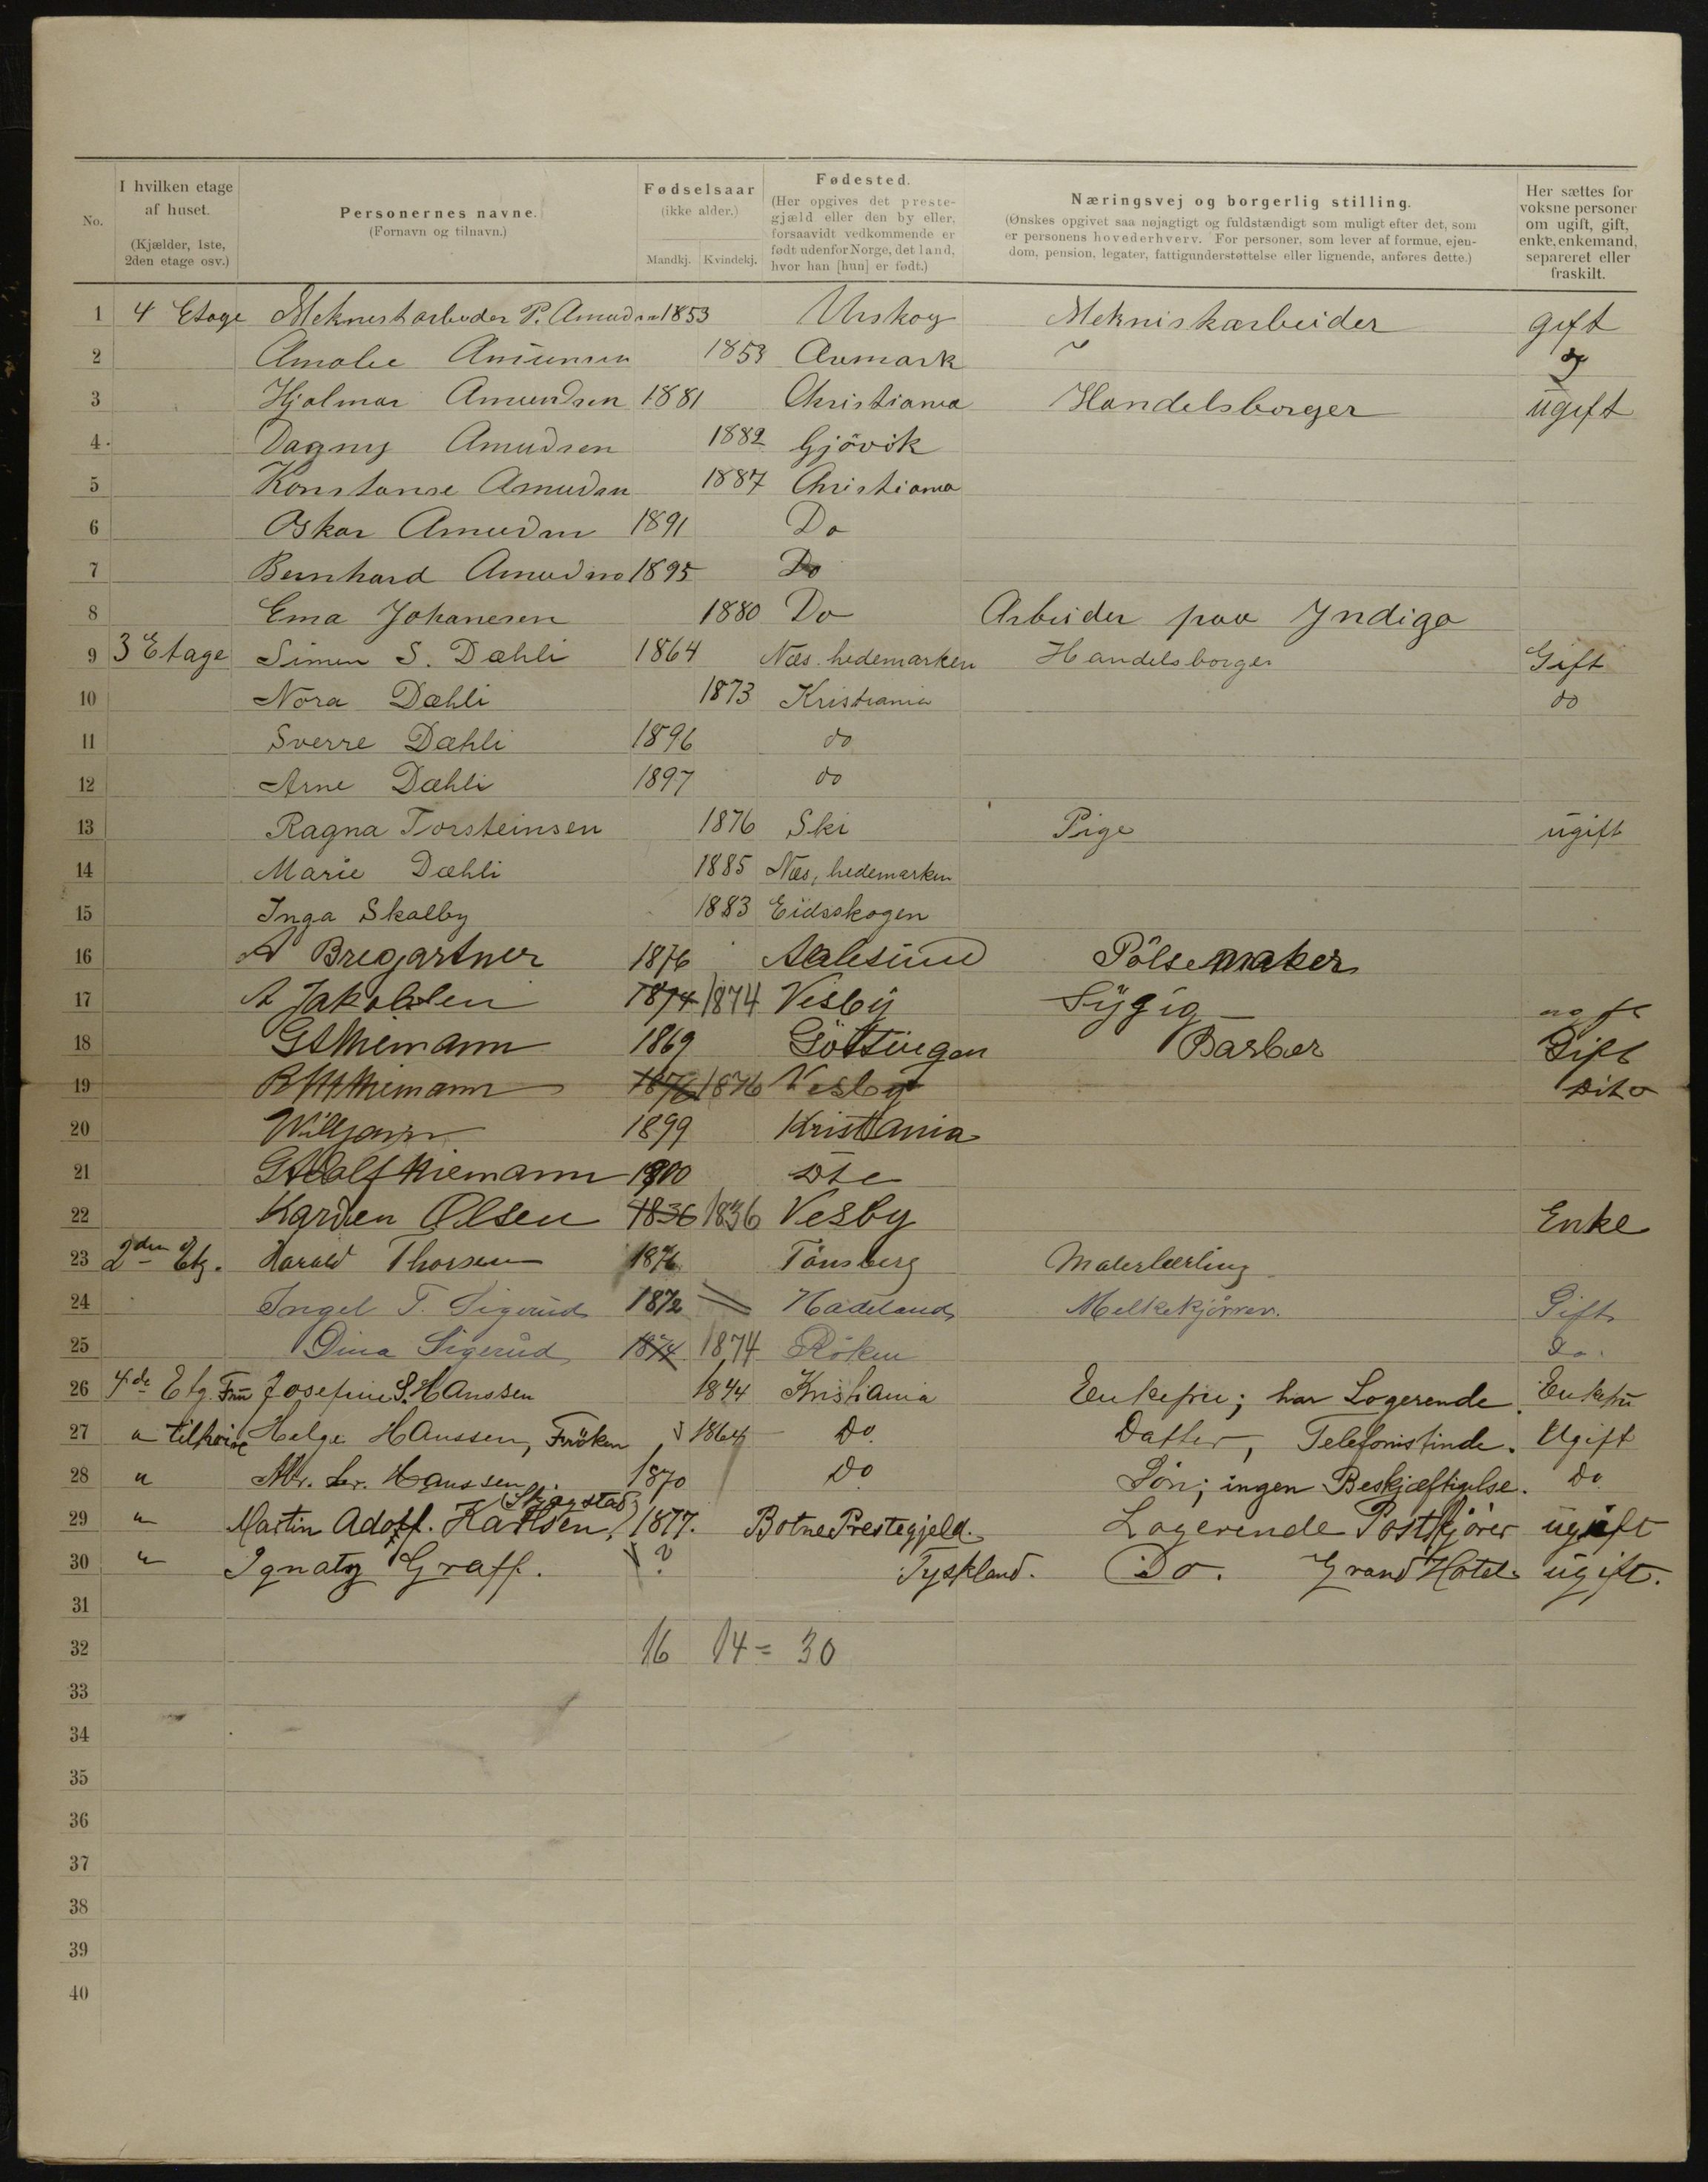 No.
I hvilken etage af huset. (Kjælder, 1ste, 2den etage osv.)
Personernes navne. (Fornavn og tilnavn.)
Fødselsaar (ikke alder.) Mandkj. Kvindekj.
Fødested. (Her opgives det prestegjæld eller den by eller, forsaavidt vedkommende er født udenfor Norge, det land, hvor han [hun] er født.)
Næringsvej og borgerlig stilling. (Ønskes opgivet saa nøjagtigt og fuldstændigt som muligt efter det, som er personens hovederhverv. For personer, som lever af formue, ejendom, pension, legater, fattigunderstøttelse eller lignende, anføres dette.)
Her sættes for voksne personer om ugift, gift, enke, enkemand, separeret eller fraskilt.
1 4 Etage P. 1853 Urskog Mekniskarbeider gift
2 1853 Aremark
3 Hjalmar Amundsen 1881 Christiania Handelsborger ugift
4 Dagny Amudsen 1882 Gjövik
5 Konstanse Amudsen 1887 Christiania
6 Oskar Amudsen 1891 Do
7 Bernhard Amudsen 1895 Do
8 Ema Johanesen 1880 Do Arbeider paa Indigo
9 3 Etage Simen S. Dæhli 1864 Næs. hedemarken Handelsborger Gift
10 Nora Dæhli 1873 Kristiania do
11 Sverre Dæhli 1896 do
12 Arne Dæhli 1897 do
13 Ragna Torsteinsen 1876 Ski Pige ugift
14 Marie Dæhli 1885 Næs, hedemarken
15 Inga Skalby 1883 Eidsskogen
16 A Bregartner 1876 Aalesund Pölsemaker
17 A Jakobsen 1874 1874 Visby Sygig
18 1869 Göttingen Barber Gift
19 1876 1876 Vesby Dito
20 1899 Kristiania
21 1900
22 Karden Olsen 1836 1836 Vesby Enke
23 2den Etg. Harald Thorsen 1876 Tönsberg Malerlærling
24 Ingel T. Sigerud 1872 Hadeland Melkekjörrer. Gift
25 Dina Sigerud 1874 1874 Röken Do.
26 4de Etg. Fru Josefine S. Hanssen 1844 Kristiania Enkefru; har Logerende. Enkefru
27 " tilhøire Helga Hanssen, Fröken 1864 Do Datter, Telefonistinde. Ugift
28 " Hanssen 1870 Do Sön; ingen Beskjæftigelse. Do
(Skjægstad)
29 " Martin Adolf. Karlsen, 1877. Botne Prestegjeld. Logerende Postkjörer ugift
30 " Ignatz Graff. ? Tyskland. Do. Grand Hotel ugift.
31
32 16 14 = 30
33
34
35
36
37
38
39
40